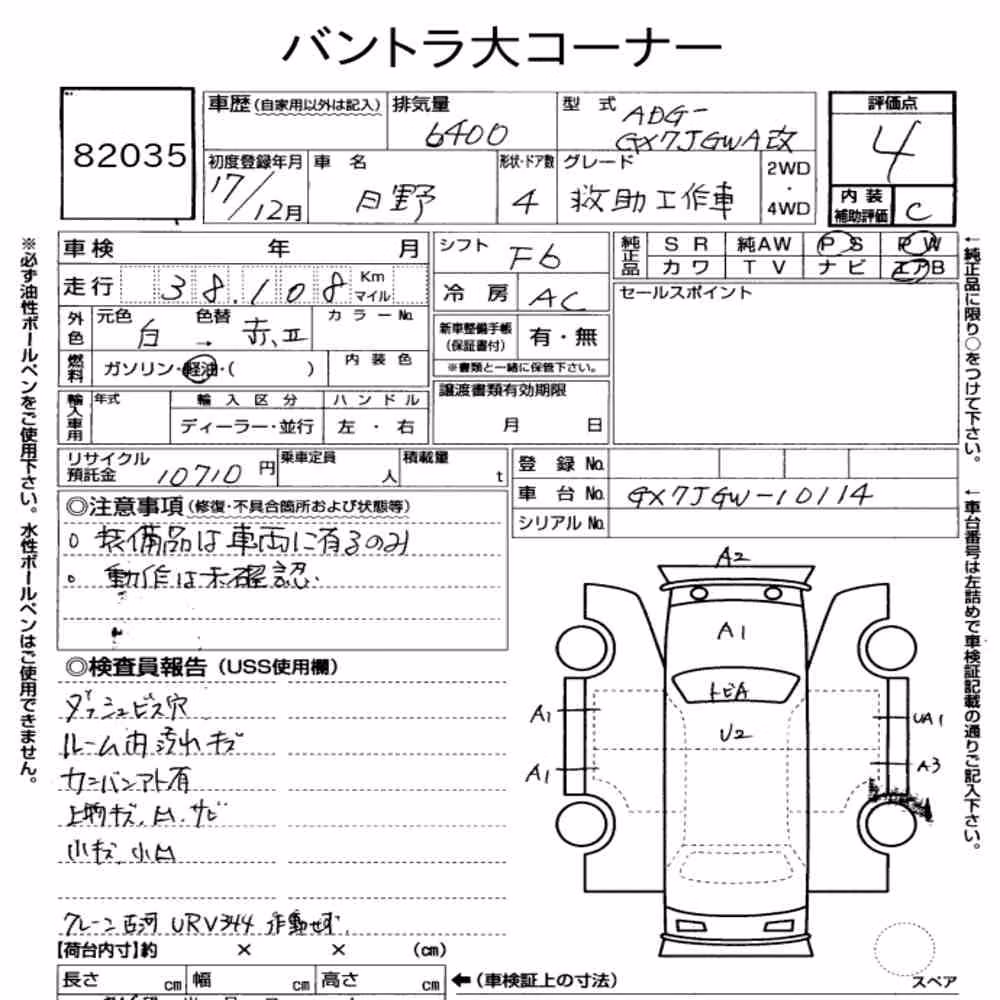 バントラ大コーナー
82035
車歴 (自家用以外は記入)
排気量
6400
型式
ADG-
GX7JGWA改
評価点
4
初度登録年月
17/12月
車名
日野
形状・ドア数
4
グレード
救助工作車
2WD
・
4WD
内装
補助評価
C
車検 年 月
シフト
F6
純正品
SR 純AW PS PW
カワ TV ナビ エアB
走行 38,108 Km
マイル
冷房
AC
セールスポイント
外色
元色 色替 カラーNo.
白 → 赤、
新車整備手帳
(保証書付)
有・無
※書類と一緒に保管下さい。
燃料
ガソリン・軽油・( )
内装色
譲渡書類有効期限
月 日
輸入車用
年式
輸入区分
ハンドル
ディーラー・並行
左・右
リサイクル
預託金
10710円
乗車定員
人
積載量
t
登録No.
車台No.
GX7JGW-10114
シリアルNo.
◎注意事項 (修復・不具合箇所および状態等)
○ 装備品は車両に有るのみ
○ 動作は未確認
◎検査員報告 (USS使用欄)
ダッシュビス穴
ルーム内汚れキズ
カンバンアト有
上物キズ、凹、サビ
小キズ、小凹
クレーン古河 URV344 作動せず
【荷台内寸】約 × × (cm)
長さ cm 幅 cm 高さ cm
←(車検証上の寸法)
A2
A1
トビA
U2
A1
A1
UA1
A3
スペア
※必ず油性ボールペンをご使用下さい。水性ボールペンはご使用できません。
←純正品に限り○をつけて下さい。
←車台番号は左詰めで車検証記載の通りご記入下さい。